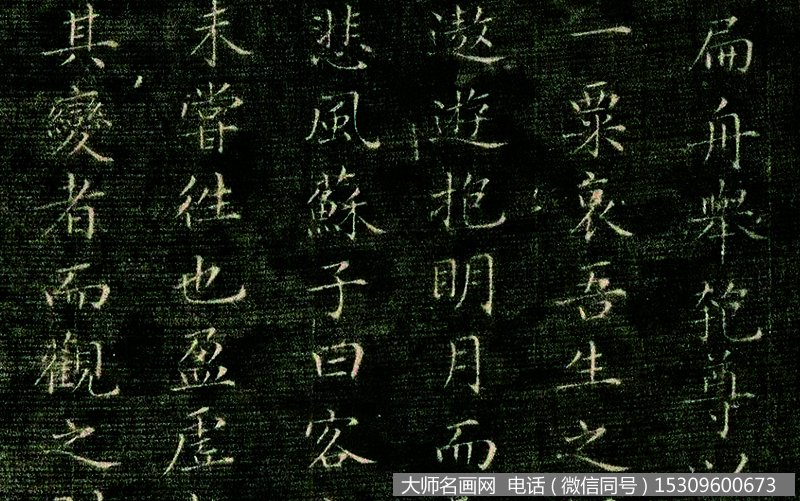 扁舟舉匏尊以
一粟哀吾生之
遨遊抱明月而
悲風蘇子曰客
未嘗往也盈虛
其變者而觀之
大师名画网 电话（微信同号）15309600673